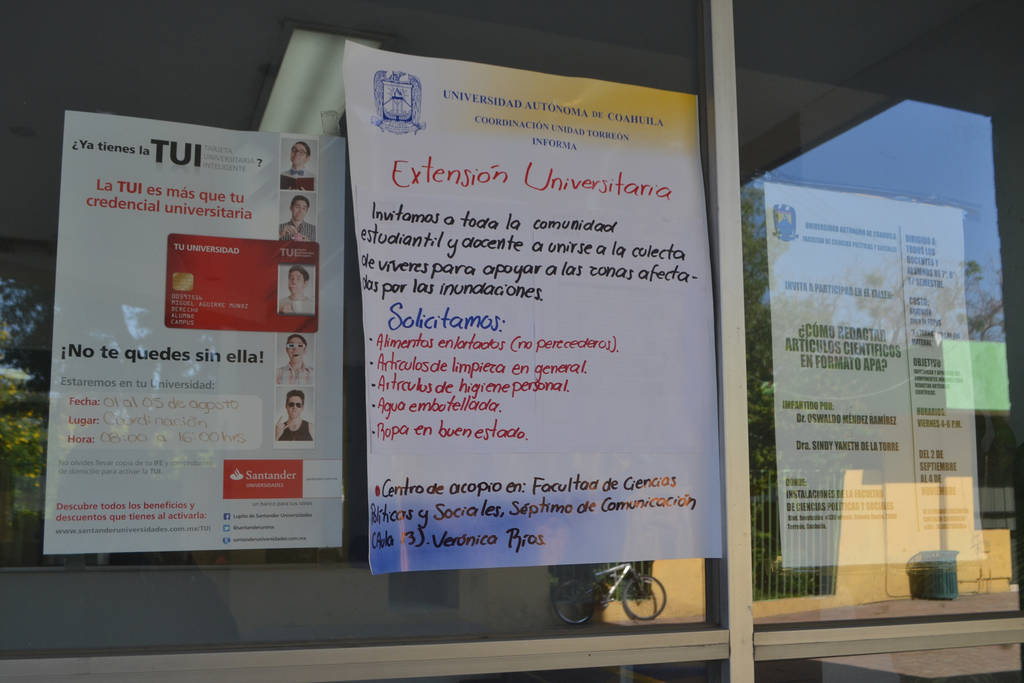 ¿Ya tienes la TUI TARJETA UNIVERSITARIA INTELIGENTE ?
La TUI es más que tu
credencial universitaria
TU UNIVERSIDAD TUI
MIGUEL AGUIRRE MUNOZ
DERECHO
ALUMNO
CAMPUS
¡No te quedes sin ella!
Estaremos en tu Universidad:
Fecha: 01 al 05 de agosto
Lugar: Coordinación
Hora: 08:00 a 16:00 hrs
No olvides llevar copia de tu IFE y comprobante
de domicilio para activar la TUI.
Santander
UNIVERSIDADES
un banco para tus ideas
Descubre todos los beneficios y
descuentos que tienes al activarla:
www.santanderuniversidades.com.mx/TUI
Lupita de Santander Universidades
santanderuniversidades.com.mx
UNIVERSIDAD AUTÓNOMA DE COAHUILA
COORDINACIÓN UNIDAD TORREÓN
INFORMA
Extensión Universitaria
Invitamos a toda la comunidad
estudiantil y docente a unirse a la colecta
de víveres para apoyar a las zonas afecta-
das por las inundaciones.
Solicitamos:
· Alimentos enlatados (no perecederos).
· Artículos de limpieza en general.
· Artículos de higiene personal.
· Agua embotellada.
· Ropa en buen estado.
• Centro de acopio en: Facultad de Ciencias
Políticas y Sociales, Séptimo de Comunicación
(Aula 13). Verónica Ríos
UNIVERSIDAD AUTÓNOMA DE COAHUILA
FACULTAD DE CIENCIAS POLÍTICAS Y SOCIALES
INVITA A PARTICIPAR EN EL TALLER:
¿CÓMO REDACTAR
ARTÍCULOS CIENTÍFICOS
EN FORMATO APA?
IMPARTIDO POR:
Dr. OSWALDO MÉNDEZ RAMÍREZ
Dra. SINDY YANETH DE LA TORRE
DONDE:
INSTALACIONES DE LA FACULTAD
DE CIENCIAS POLÍTICAS Y SOCIALES
DIRIGIDO A
TODOS LOS
DOCENTES Y
ALUMNOS DE 7°, 8°
COSTO:
MATERIAL
OBJETIVO
HORARIOS:
VIERNES 4-6 P.M.
DEL 2 DE
SEPTIEMBRE
AL 4 DE
NOVIEMBRE